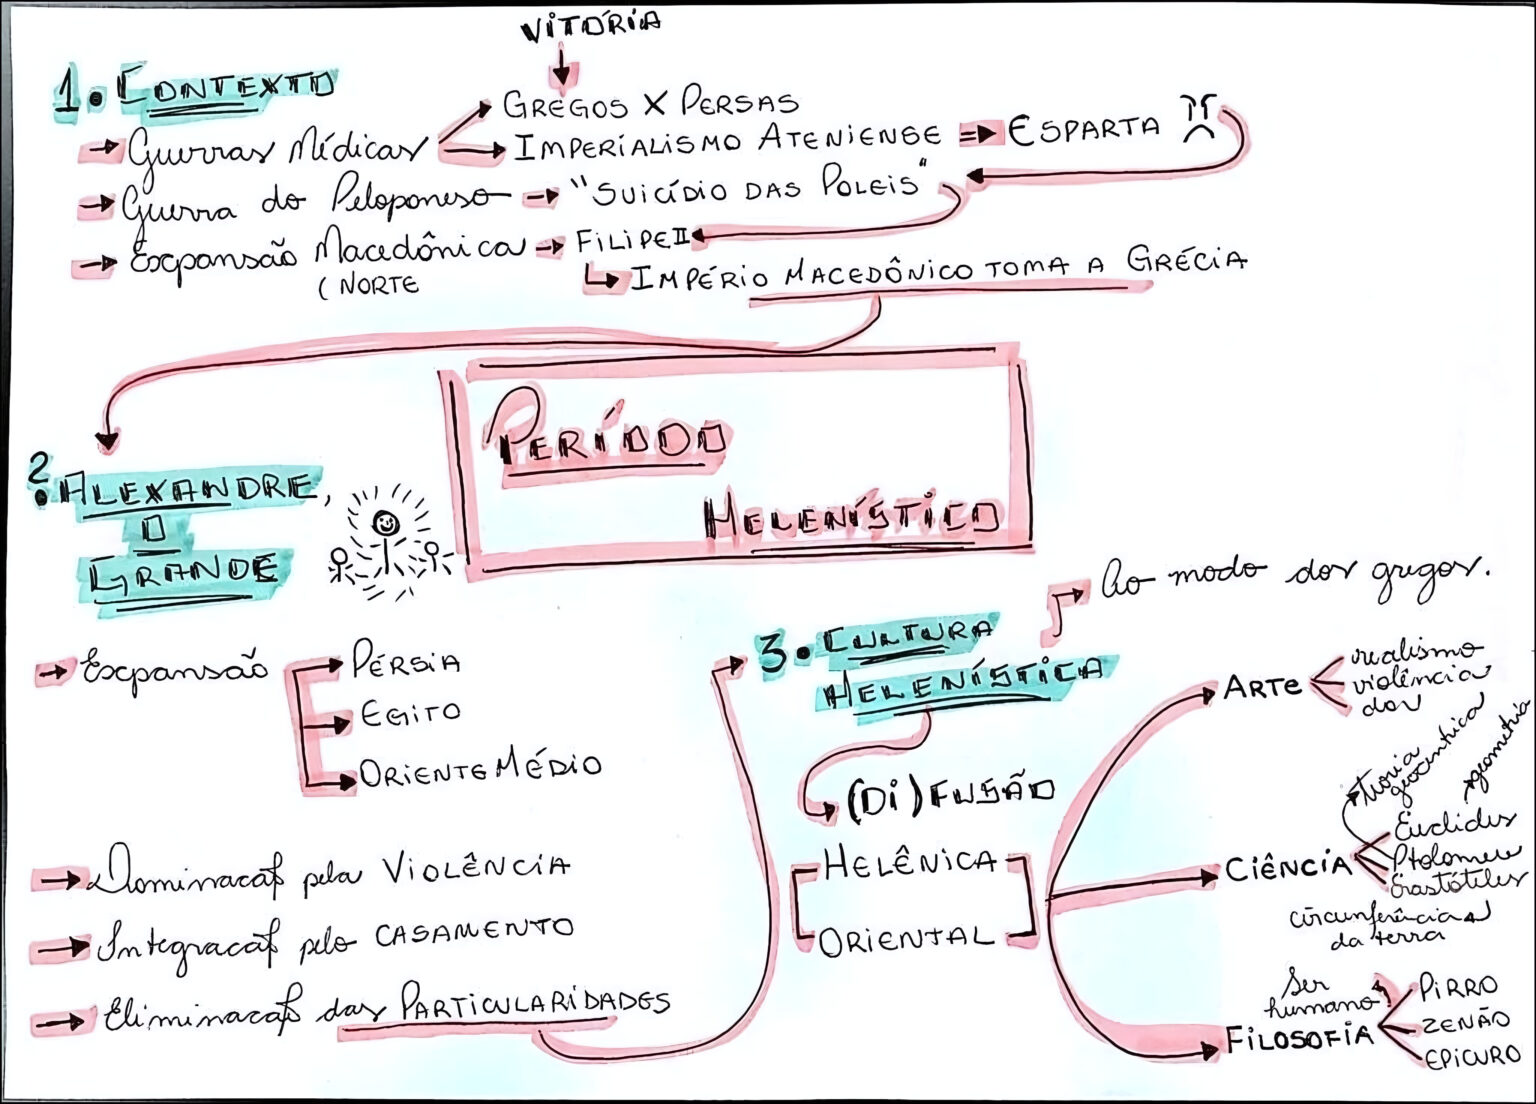 VITÓRIA
1. CONTEXTO
GREGOS X PERSAS
→ Guerras Médicas
IMPERIALISMO ATENIENSE ⇒ ESPARTA
→ Guerra do Peloponeso → "SUICÍDIO DAS POLEIS"
→ Expansão Macedônica → FILIPE II
(NORTE
IMPÉRIO MACEDÔNICO TOMA A GRÉCIA
PERÍODO
HELENÍSTICO
2. ALEXANDRE,
O
GRANDE
→ Expansão
PÉRSIA
EGITO
ORIENTE MÉDIO
→ Dominação pela VIOLÊNCIA
→ Integração pelo CASAMENTO
→ Eliminação das PARTICULARIDADES
Ao modo dos gregos.
3. CULTURA
HELENÍSTICA
(DI) FUSÃO
HELÊNICA
ORIENTAL
ARTE
realismo
violência
dor
CIÊNCIA
teoria
geocêntrica
geometria
Euclides
Ptolomeu
Erastóteles
circunferência
da terra
Ser
humano
FILOSOFIA
PIRRO
ZENÃO
EPICURO